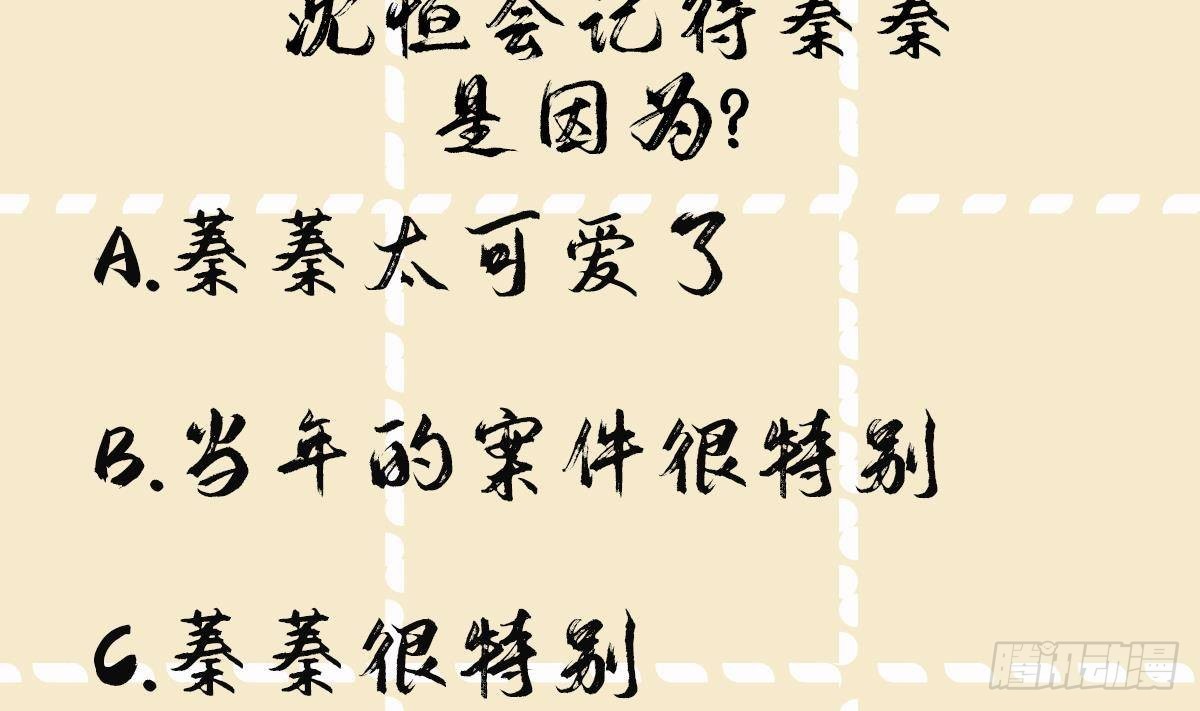 沈恒会记得蓁蓁
是因为?
A.蓁蓁太可爱了
B.当年的案件很特别
C.蓁蓁很特别
腾讯动漫